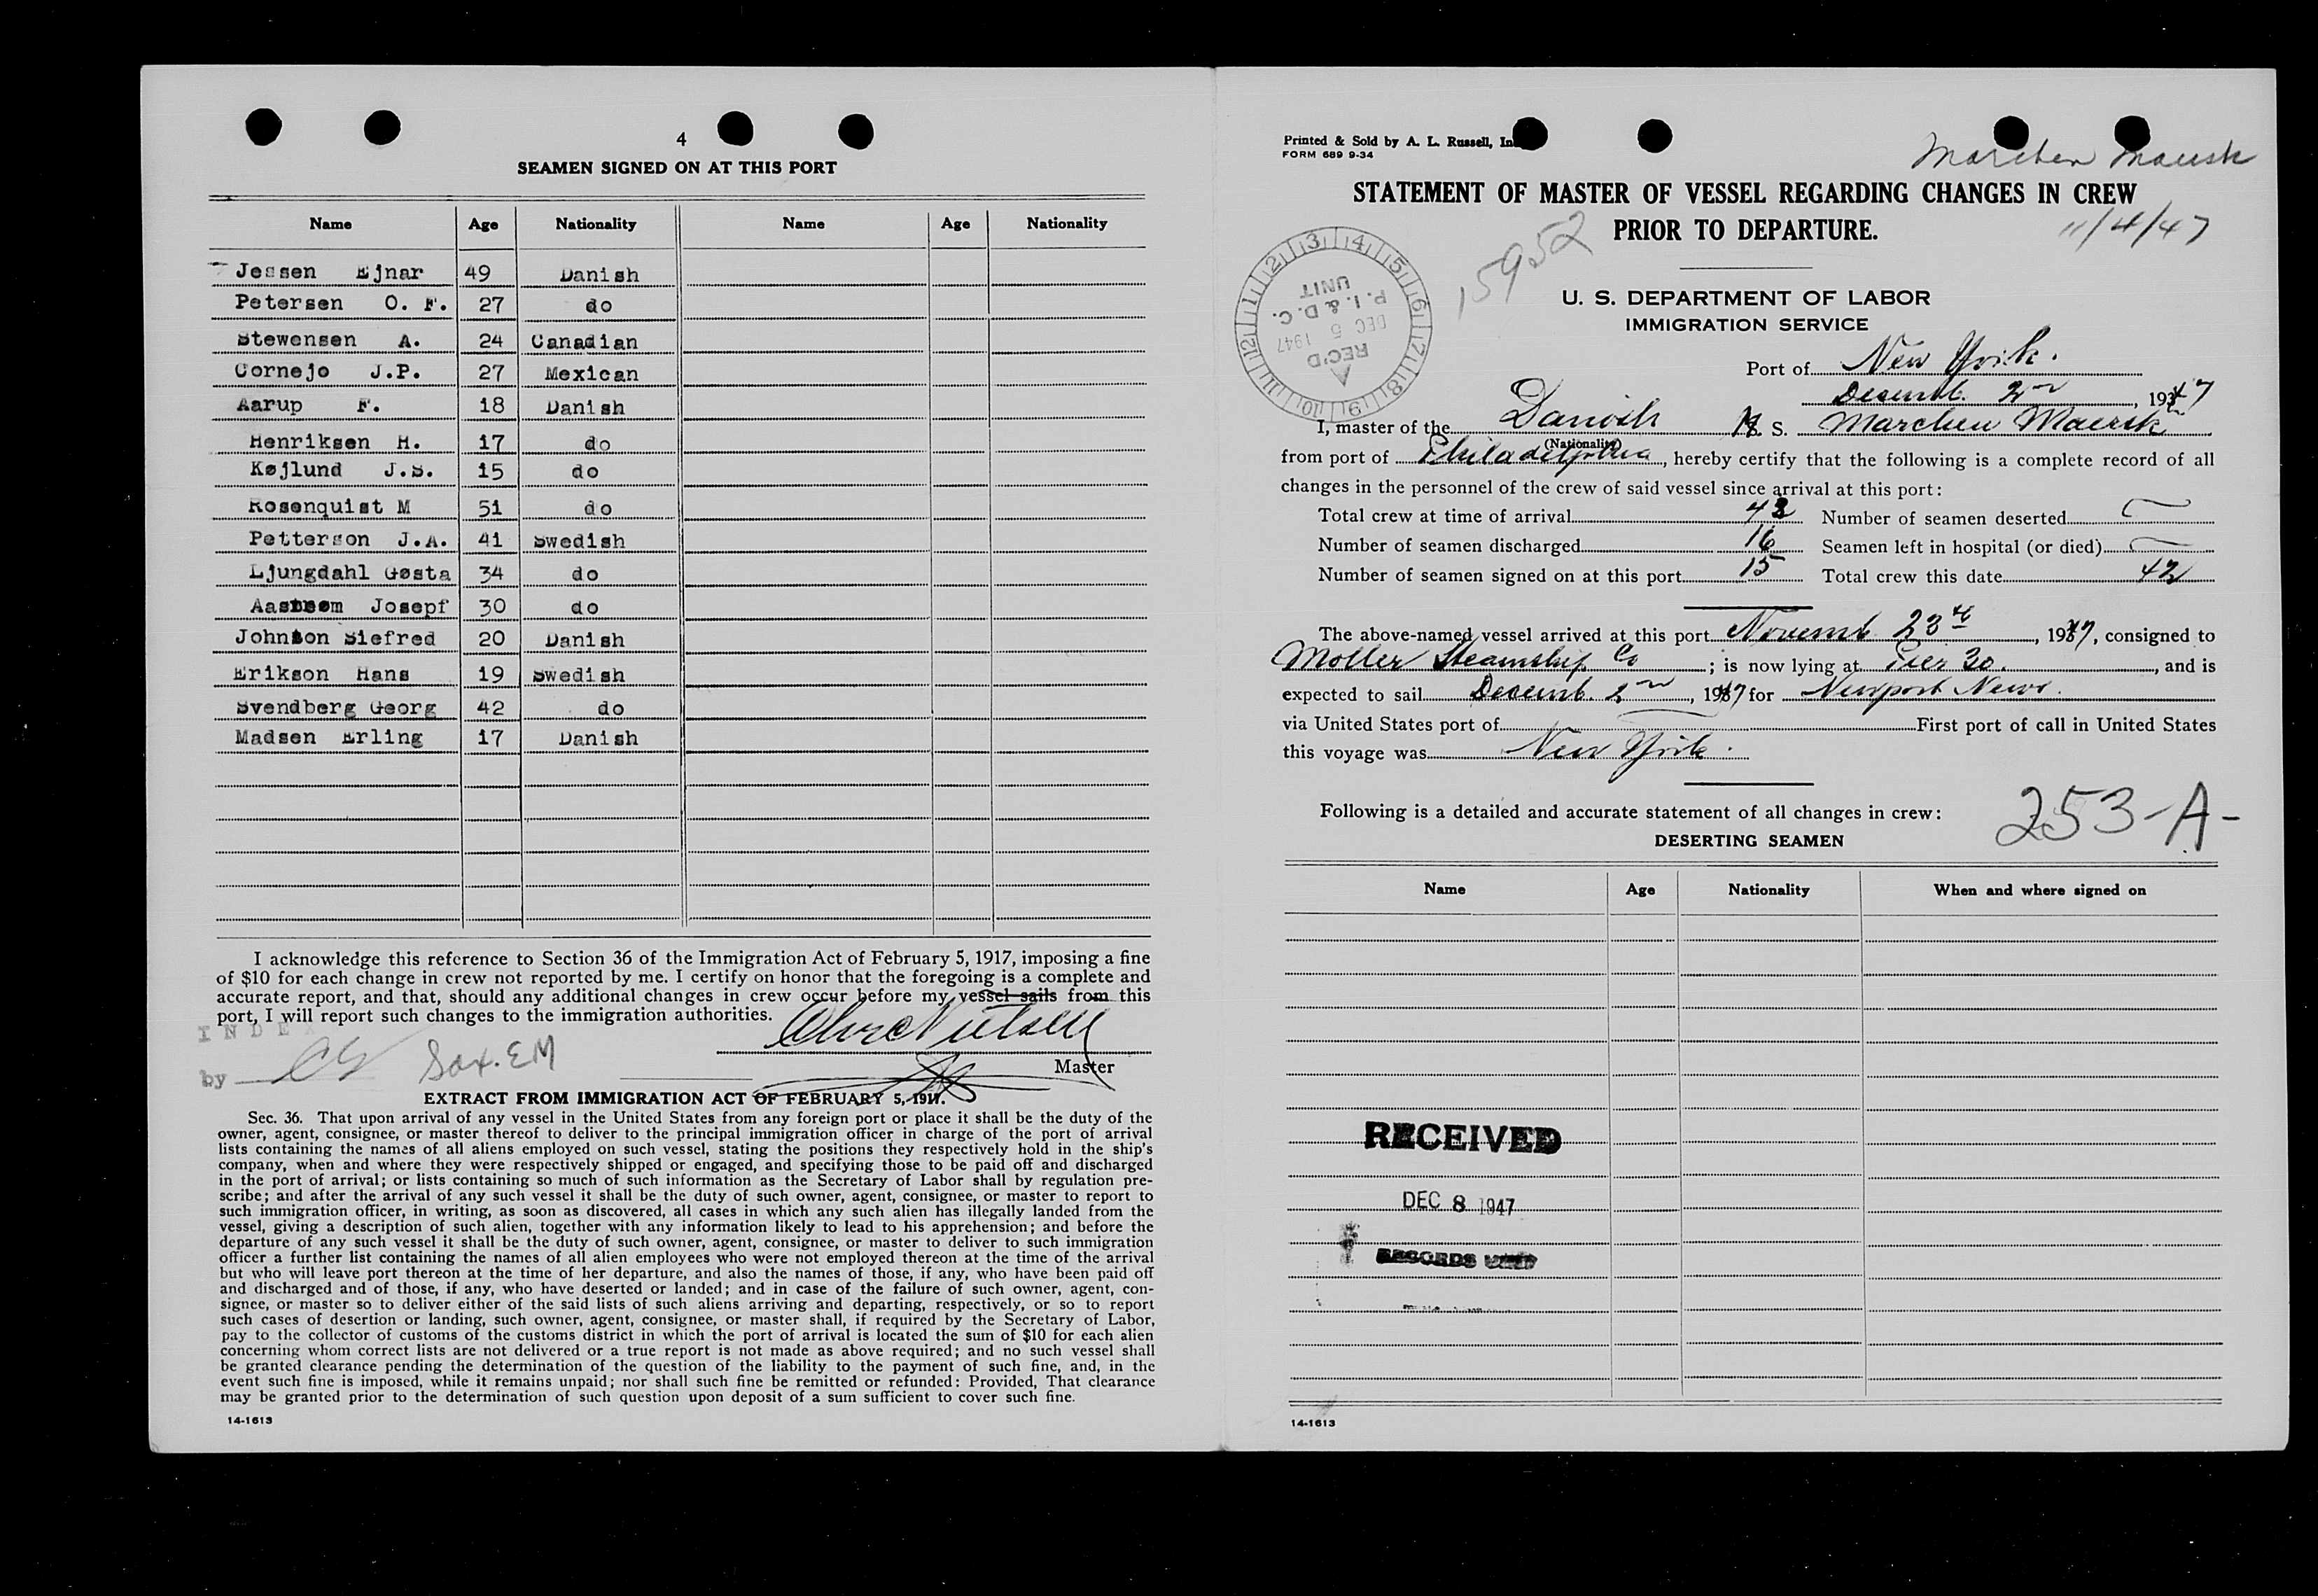 4
SEAMEN SIGNED ON AT THIS PORT
Name Age Nationality Name Age Nationality
Jessen Ejnar 49 Danish
Petersen O. F. 27 do
Stewensen A. 24 Canadian
Cornejo J.P. 27 Mexican
Aarup F. 18 Danish
Henriksen H. 17 do
Køjlund J.S. 15 do
Rosenquist M 51 do
Petterson J.A. 41 Swedish
Ljungdahl Gøsta 34 do
Josepf 30 do
Johnson Siefred 20 Danish
Erikson Hans 19 Swedish
Svendberg Georg 42 do
Madsen Erling 17 Danish
I acknowledge this reference to Section 36 of the Immigration Act of February 5, 1917, imposing a fine
of $10 for each change in crew not reported by me. I certify on honor that the foregoing is a complete and
accurate report, and that, should any additional changes in crew occur before my vessel sails from this
port, I will report such changes to the immigration authorities.
INDEX
by
Master
EXTRACT FROM IMMIGRATION ACT OF FEBRUARY 5, 1917.
Sec. 36. That upon arrival of any vessel in the United States from any foreign port or place it shall be the duty of the
owner, agent, consignee, or master thereof to deliver to the principal immigration officer in charge of the port of arrival
lists containing the names of all aliens employed on such vessel, stating the positions they respectively hold in the ship's
company, when and where they were respectively shipped or engaged, and specifying those to be paid off and discharged
in the port of arrival; or lists containing so much of such information as the Secretary of Labor shall by regulation pre-
scribe; and after the arrival of any such vessel it shall be the duty of such owner, agent, consignee, or master to report to
such immigration officer, in writing, as soon as discovered, all cases in which any such alien has illegally landed from the
vessel, giving a description of such alien, together with any information likely to lead to his apprehension; and before the
departure of any such vessel it shall be the duty of such owner, agent, consignee, or master to deliver to such immigration
officer a further list containing the names of all alien employees who were not employed thereon at the time of the arrival
but who will leave port thereon at the time of her departure, and also the names of those, if any, who have been paid off
and discharged and of those, if any, who have deserted or landed; and in case of the failure of such owner, agent, con-
signee, or master so to deliver either of the said lists of such aliens arriving and departing, respectively, or so to report
such cases of desertion or landing, such owner, agent, consignee, or master shall, if required by the Secretary of Labor,
pay to the collector of customs of the customs district in which the port of arrival is located the sum of $10 for each alien
concerning whom correct lists are not delivered or a true report is not made as above required; and no such vessel shall
be granted clearance pending the determination of the question of the liability to the payment of such fine, and, in the
event such fine is imposed, while it remains unpaid; nor shall such fine be remitted or refunded: Provided, That clearance
may be granted prior to the determination of such question upon deposit of a sum sufficient to cover such fine.
14-1613
Printed & Sold by A. L. Russell,
FORM 689 9-34
Marchen Maersk
STATEMENT OF MASTER OF VESSEL REGARDING CHANGES IN CREW
PRIOR TO DEPARTURE.
11/4/47
15952
REC'D
DEC 5 1947
P. I. & D. C.
UNIT
U. S. DEPARTMENT OF LABOR
IMMIGRATION SERVICE
Port of New York.
Decemb. 2nd, 1947
I, master of the Danish M. S. Marchen Maersk
(Nationality)
from port of Philadelphia, hereby certify that the following is a complete record of all
changes in the personnel of the crew of said vessel since arrival at this port:
Total crew at time of arrival 43 Number of seamen deserted
Number of seamen discharged 16 Seamen left in hospital (or died)
Number of seamen signed on at this port 15 Total crew this date 42
The above-named vessel arrived at this port Novemb. 23, 1947, consigned to
Moller Steamship Co; is now lying at Pier 30., and is
expected to sail Decemb. 2nd, 1947 for Newport News.
via United States port of First port of call in United States
this voyage was New York.
Following is a detailed and accurate statement of all changes in crew:
253-A-
DESERTING SEAMEN
Name Age Nationality When and where signed on
RECEIVED
DEC 8 1947
RECORDS UNIT
14-1613